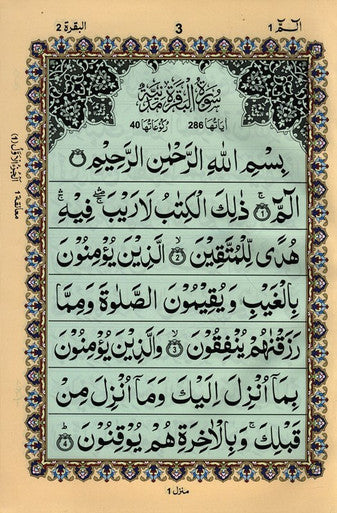 الٓمّٓ 1
3
البقرة 2
سُوْرَةُ الْبَقَرَةِ مَدَنِيَّةٌ
اٰيَاتُهَا 286 رُكُوْعَاتُهَا 40
بِسْمِ اللهِ الرَّحْمٰنِ الرَّحِيْمِ
الٓمّٓ ۝1 ذٰلِكَ الْكِتٰبُ لَا رَيْبَ فِيْهِ
هُدًى لِّلْمُتَّقِيْنَ ۝2 الَّذِيْنَ يُؤْمِنُوْنَ
بِالْغَيْبِ وَيُقِيْمُوْنَ الصَّلٰوةَ وَمِمَّا
رَزَقْنٰهُمْ يُنْفِقُوْنَ ۝3 وَالَّذِيْنَ يُؤْمِنُوْنَ
بِمَآ اُنْزِلَ اِلَيْكَ وَمَآ اُنْزِلَ مِنْ
قَبْلِكَ ۚ وَبِالْاٰخِرَةِ هُمْ يُوْقِنُوْنَ ۝4
معانقة 1
منزل 1